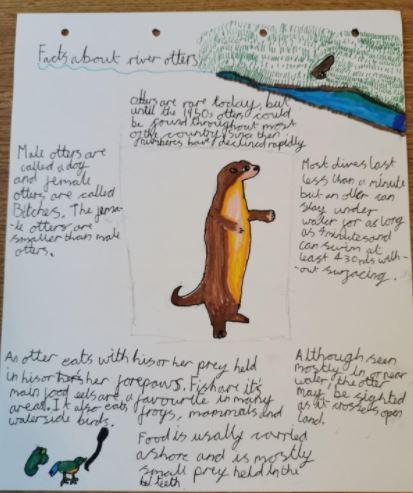 Facts about river otters
Otters are rare today, but
until the 1950s otters could
be found throughout most
of the country, since then
numbers have declined rapidly
Male otters are
called a dog
and female
otters are called
Bitches. The fema-
-le otters are
smaller than male
otters.
Most dives last
less than a minute
but an otter can
stay under
water for as long
as 4 minutes and
can swim at
least 430ds with-
-out surfacing.
An otter eats with his or her prey held
in his or her forepaws. Fish are its
main food eels are a favourite in many
areas. It also eats frogs, mammals and
waterside birds.
Although seen
mostly in or near
water, the otter
may be sighted
as it crosses open
land.
Food is usally carried
ashore and is mostly
small prey held in the
teeth.